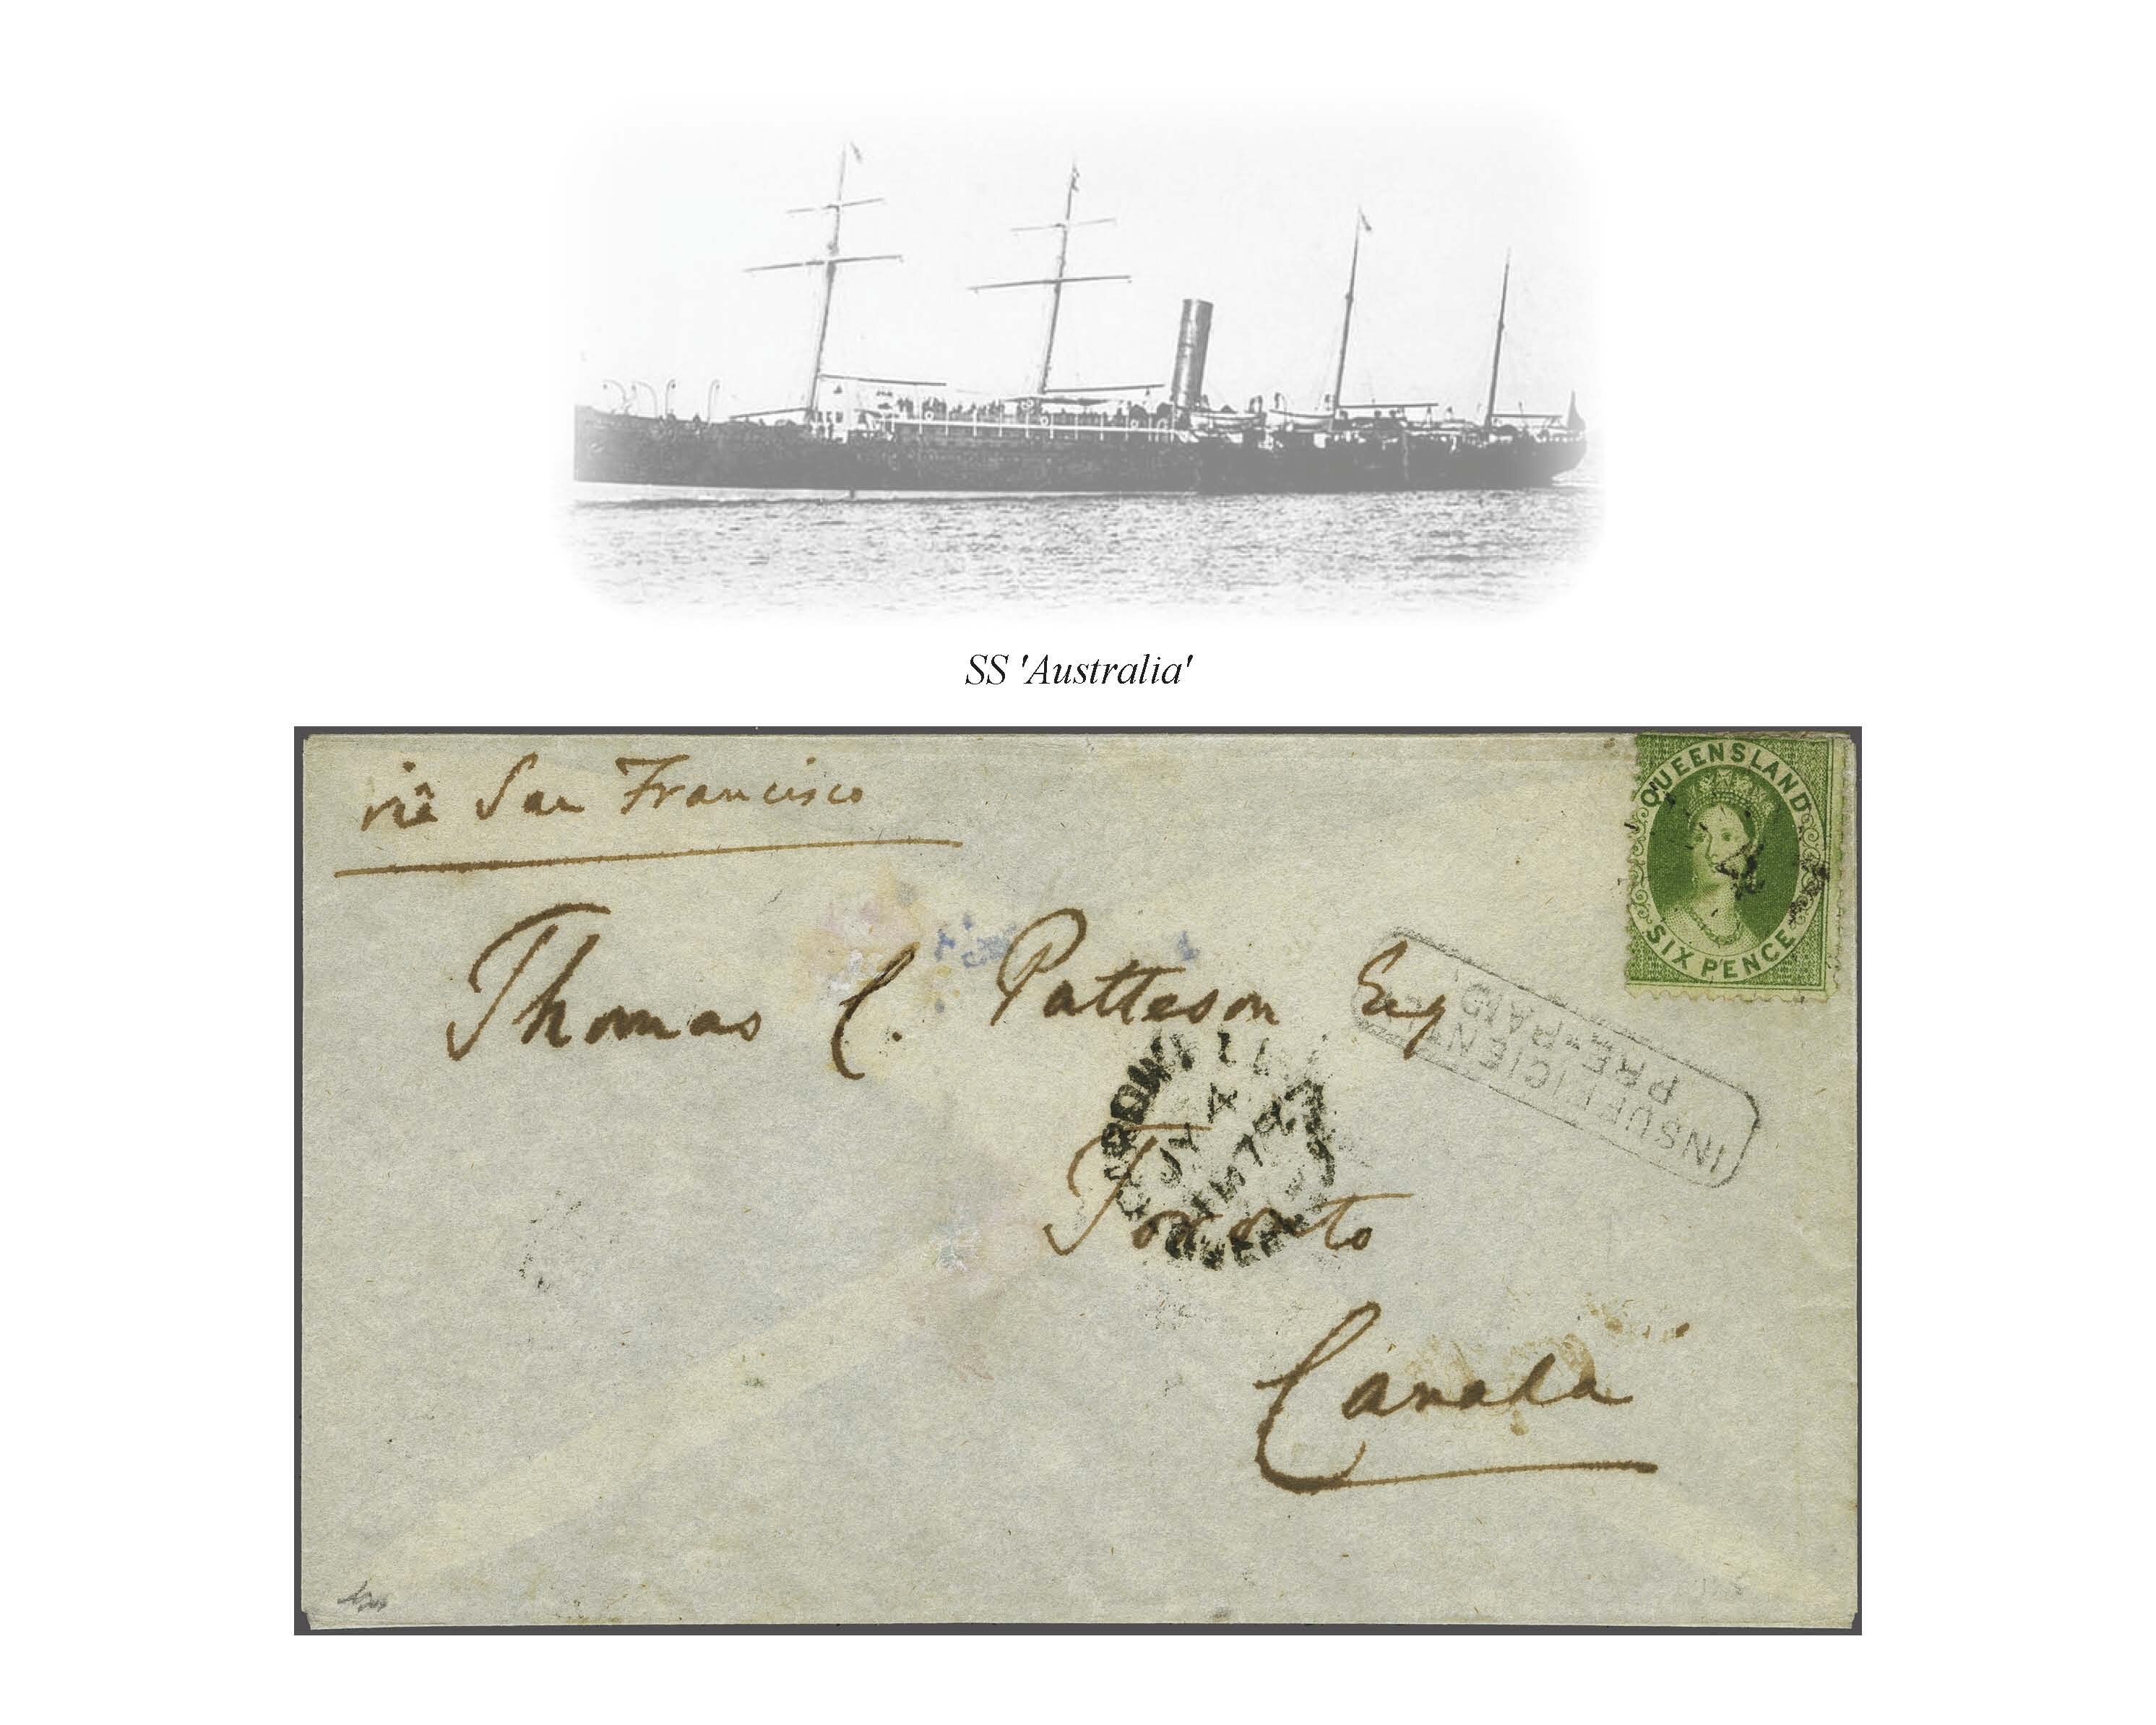 SS 'Australia'
viâ San Francisco
QUEENSLAND
SIX PENCE
Thomas C. Patteson Esq
INSUFFICIENTLY
PRE-PAID
JY 4
Toronto
Canada